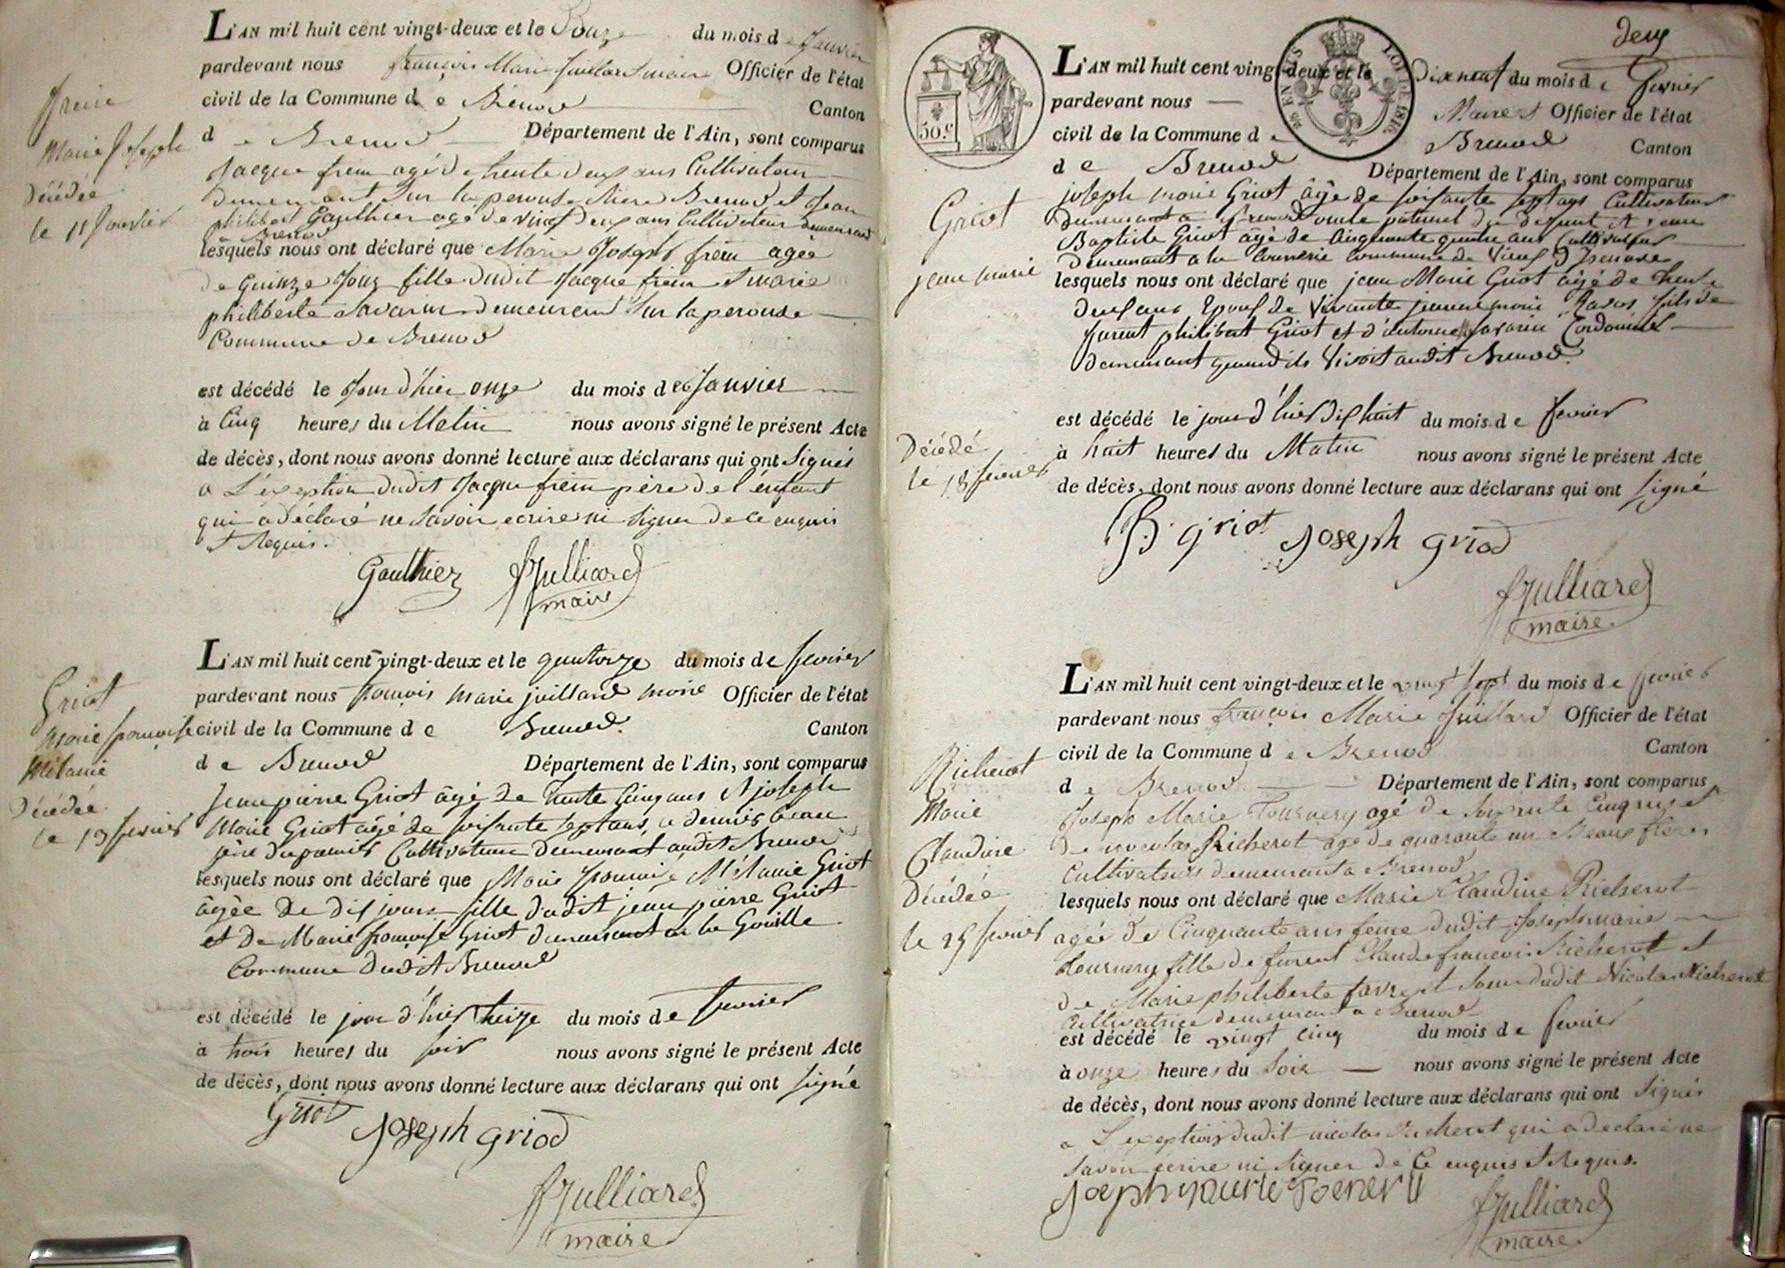 L'AN mil huit cent vingt-deux et le Douze du mois de Janvier
pardevant nous françois Marie Juillard maire Officier de l'état
civil de la Commune de Brenod Canton
de Brenod Département de l'Ain, sont comparus
Jacque frein agé de trente deux ans Cultivateur
demeurant sur la perouse Brenod et Jean
philibert Gaulthier agé de vingt deux ans Cultivateur demeurant
a Brenod
lesquels nous ont déclaré que Marie Joseph frein agée
de Quinze Jour fille dudit Jacque frein et marie
philiberte Savarin demeurant sur la perouse
Commune de Brenod
est décédé le Jour d'hier onze du mois de Janvier
à Cinq heures du Matin nous avons signé le présent Acte
de décès, dont nous avons donné lecture aux déclarans qui ont Signés
a L'exception dudit Jacque frein père de l'enfant
qui a déclaré ne Savoir ecrire ni Signer de ce enquis
et Requis.
Gaulthier JJulliard
maire
freine
Marie Joseph
Décédée
le 11 Janvier
L'AN mil huit cent vingt-deux et le quatorze du mois de fevrier
pardevant nous françois marie juillard maire Officier de l'état
civil de la Commune de Brenod Canton
de Brenod Département de l'Ain, sont comparus
Jean pierre Griot âgé de trente Cinq ans et joseph
Marie Griot âgé de soixante sept ans, ce dernier beau
père du premier Cultivateurs demeurant audit Brenod
lesquels nous ont déclaré que Marie françoise Mélanie Griot
âgée de dix jours fille dudit jean pierre Griot
et de Marie françoise Griot demeurant a la Gouille
Commune dudit Brenod
est décédé le jour d'hier treize du mois de fevrier
à trois heures du soir nous avons signé le présent Acte
de décès, dont nous avons donné lecture aux déclarans qui ont signé
Griot
Joseph griod
JJulliard
maire
Griot
Marie françoise
Mélanie
Décédée
le 13 fevrier
deux
50.c
LOI DE 1816
L'AN mil huit cent vingt-deux et le Dix neuf du mois de fevrier
pardevant nous Maire et Officier de l'état
civil de la Commune de Brenod Canton
de Brenod Département de l'Ain, sont comparus
joseph marie Griot âgé de soixante sept ans Cultivateur
demeurant a Brenod oncle paternel du defunt et Jean
Baptiste Griot âgé de Cinquante quatre ans Cultivateur
demeurant a la Commune de Vieux d'Izenave
lesquels nous ont déclaré que jean Marie Griot âgé de trente
deux ans Epoux de Vivante jeanne marie fils de
furent philibert Griot et d'antoine Savarin Cordonnier
demeurant quand ils Vivoit audit Brenod.
est décédé le jour d'hier dix huit du mois de fevrier
à huit heures du Matin nous avons signé le présent Acte
de décès, dont nous avons donné lecture aux déclarans qui ont signé
B. griot Joseph griod
JJulliard
maire.
Griot
jean marie
Décédé
le 18 fevrier
L'AN mil huit cent vingt-deux et le vingt sept du mois de fevrier
pardevant nous françois Marie Juillard Officier de l'état
civil de la Commune de Brenod Canton
de Brenod Département de l'Ain, sont comparus
Joseph Marie Tournery agé de Cinq ans et
de nicolas Richerot agé de quarante un Beaux freres
Cultivateurs demeurant a Brenod
lesquels nous ont déclaré que Marie Claudine Richerot
agée de Cinquante ans feme dudit Joseph marie
tournery fille de furent Claude francois Richerot et
de Marie philiberte favre et Soeur dudit Nicolas Richerot
Cultivatrice demeurant a Brenod
est décédé le vingt cinq du mois de fevrier
à onze heures du Soir nous avons signé le présent Acte
de décès, dont nous avons donné lecture aux déclarans qui ont Signés
a L'exception dudit nicolas richerot qui a declaré ne
Savoir écrire ni Signer de Ce enquis et Requis.
JJulliard
maire.
Richerot
Marie
Claudine
Décédée
le 25 fevrier